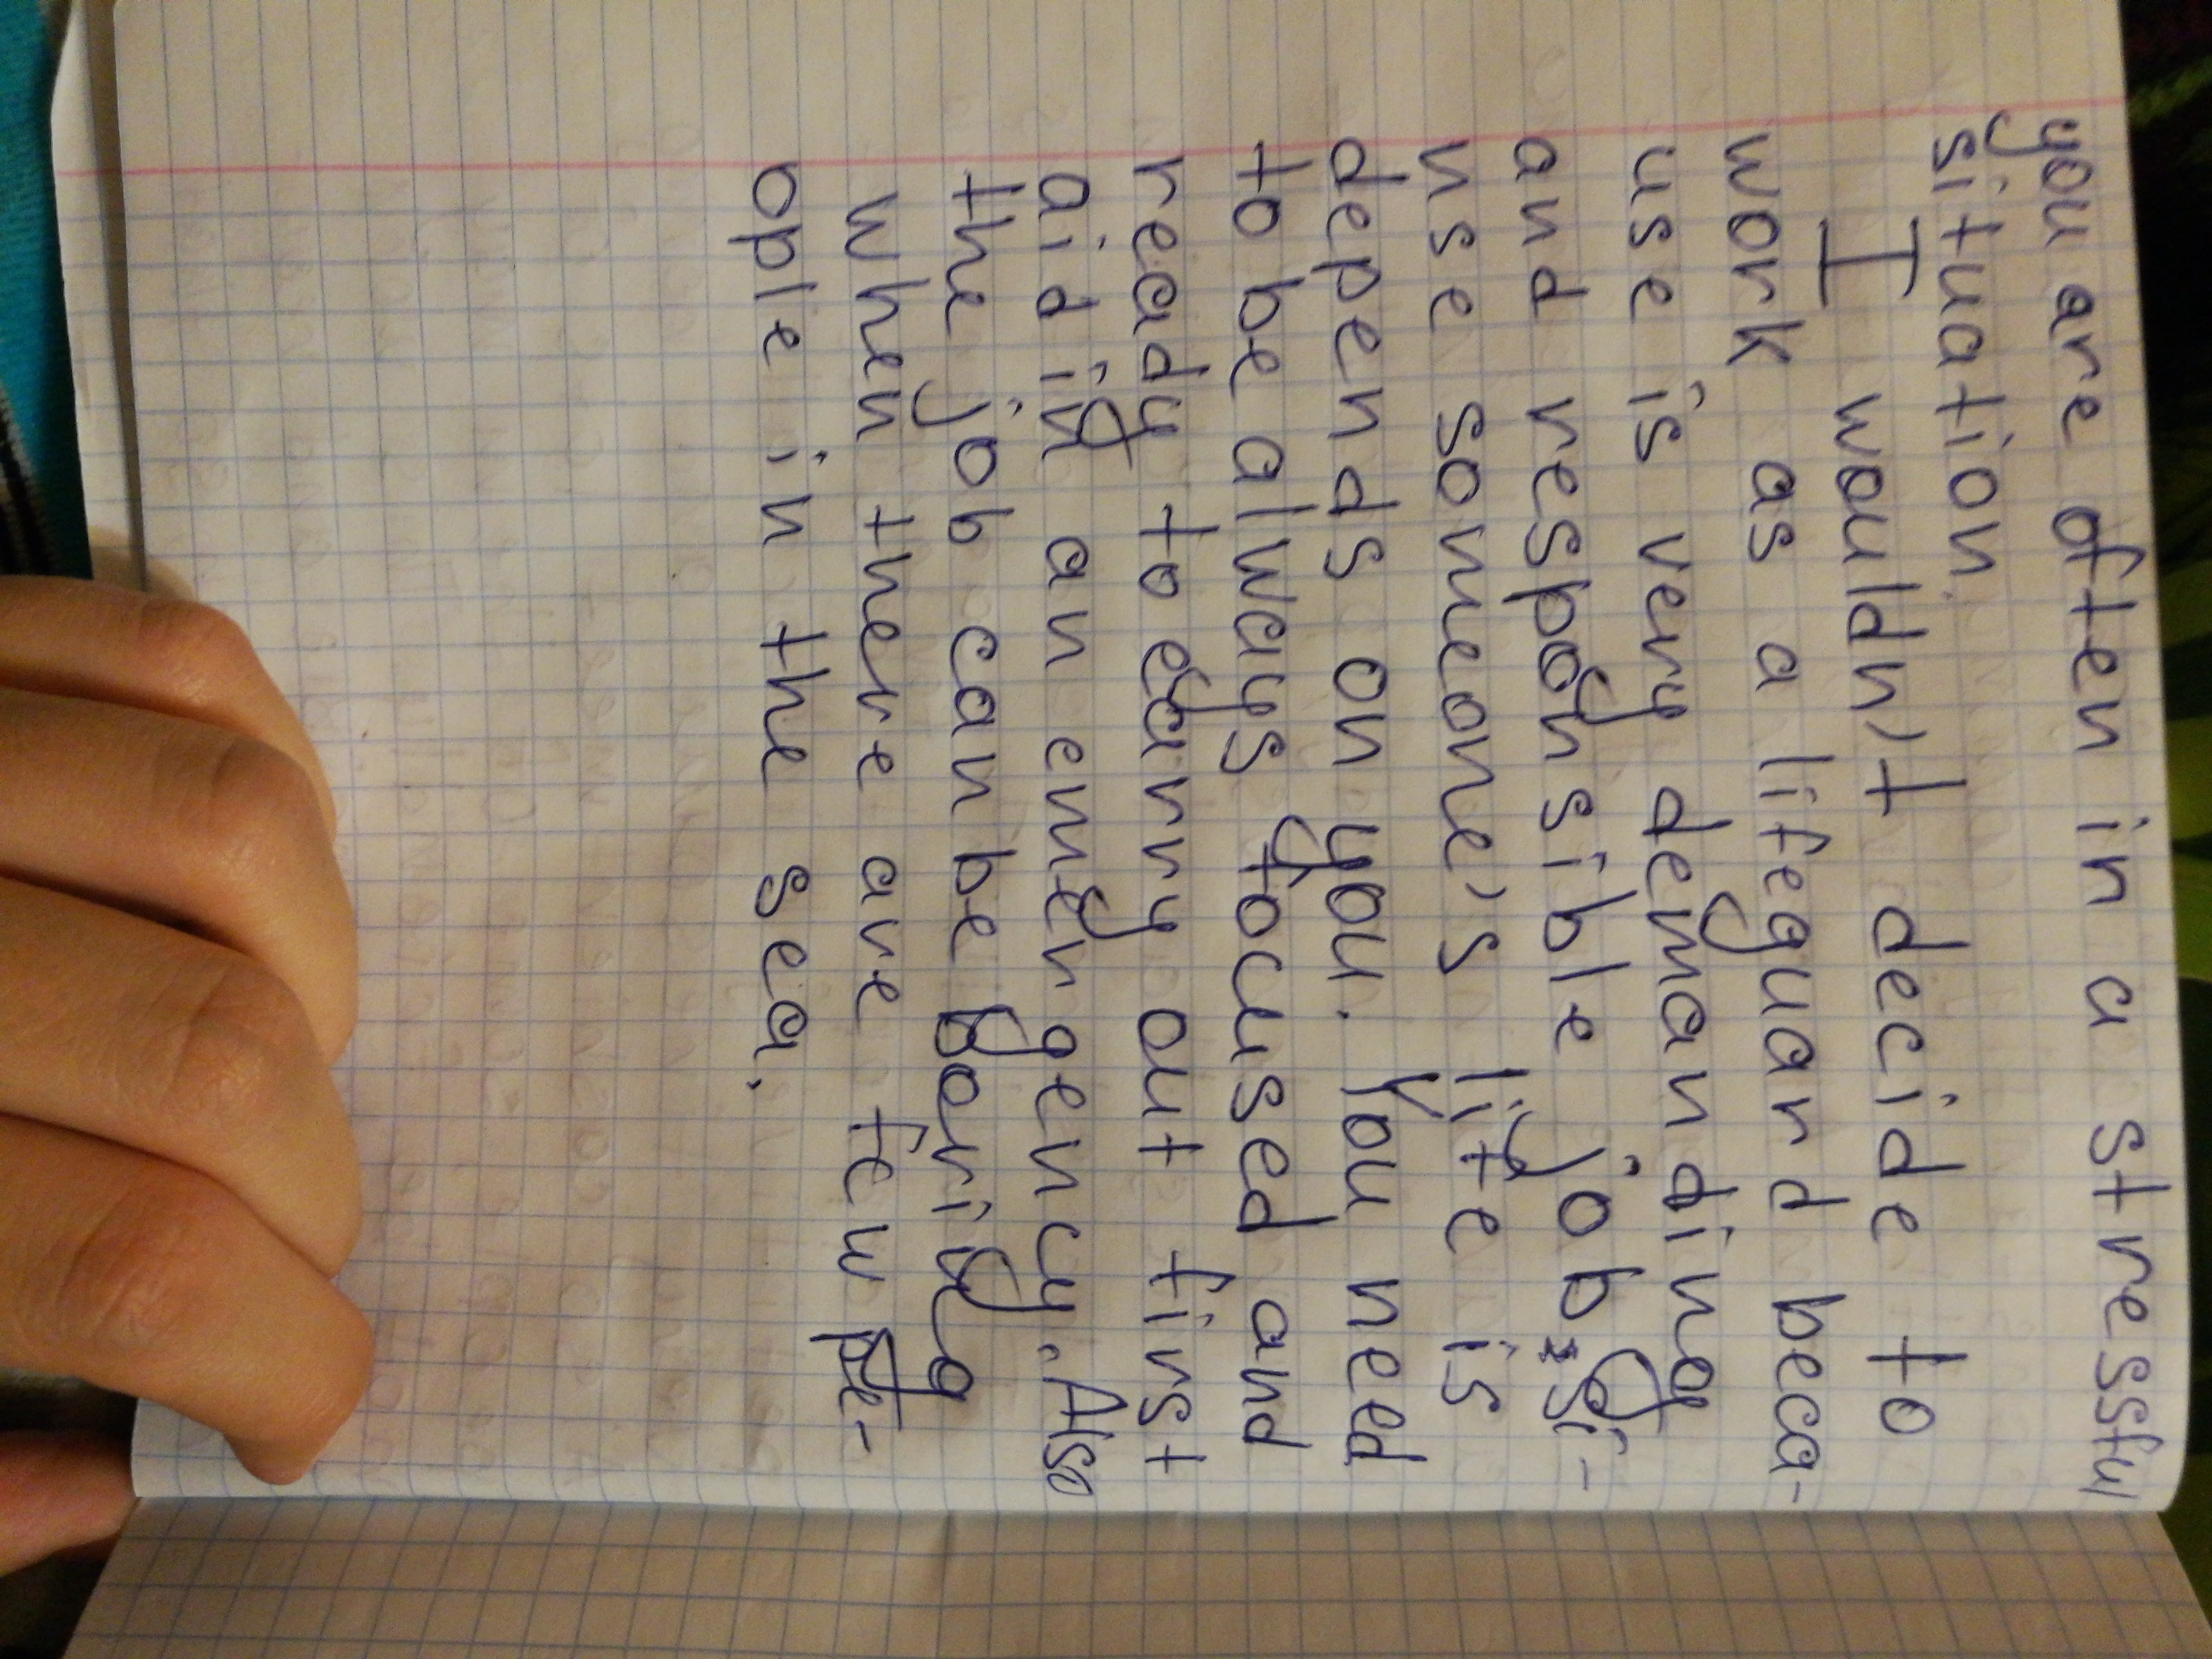 you are often in a stressful
situation.
I wouldn't decide to
work as a lifeguard beca-
use is very demanding
and responsible job si-
nse someone's life is
depends on you. You need
to be always focused and
ready to carry out first
aid in an emergency. Also
the job can be boring
when there are few pe-
ople in the sea.